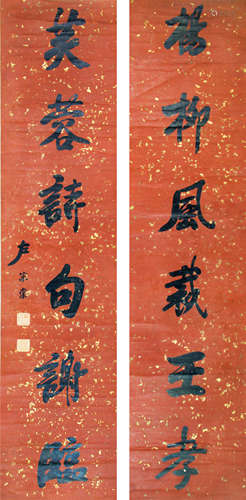 楊柳風裁王孝
芙蓉詩句謝臨
左宗棠